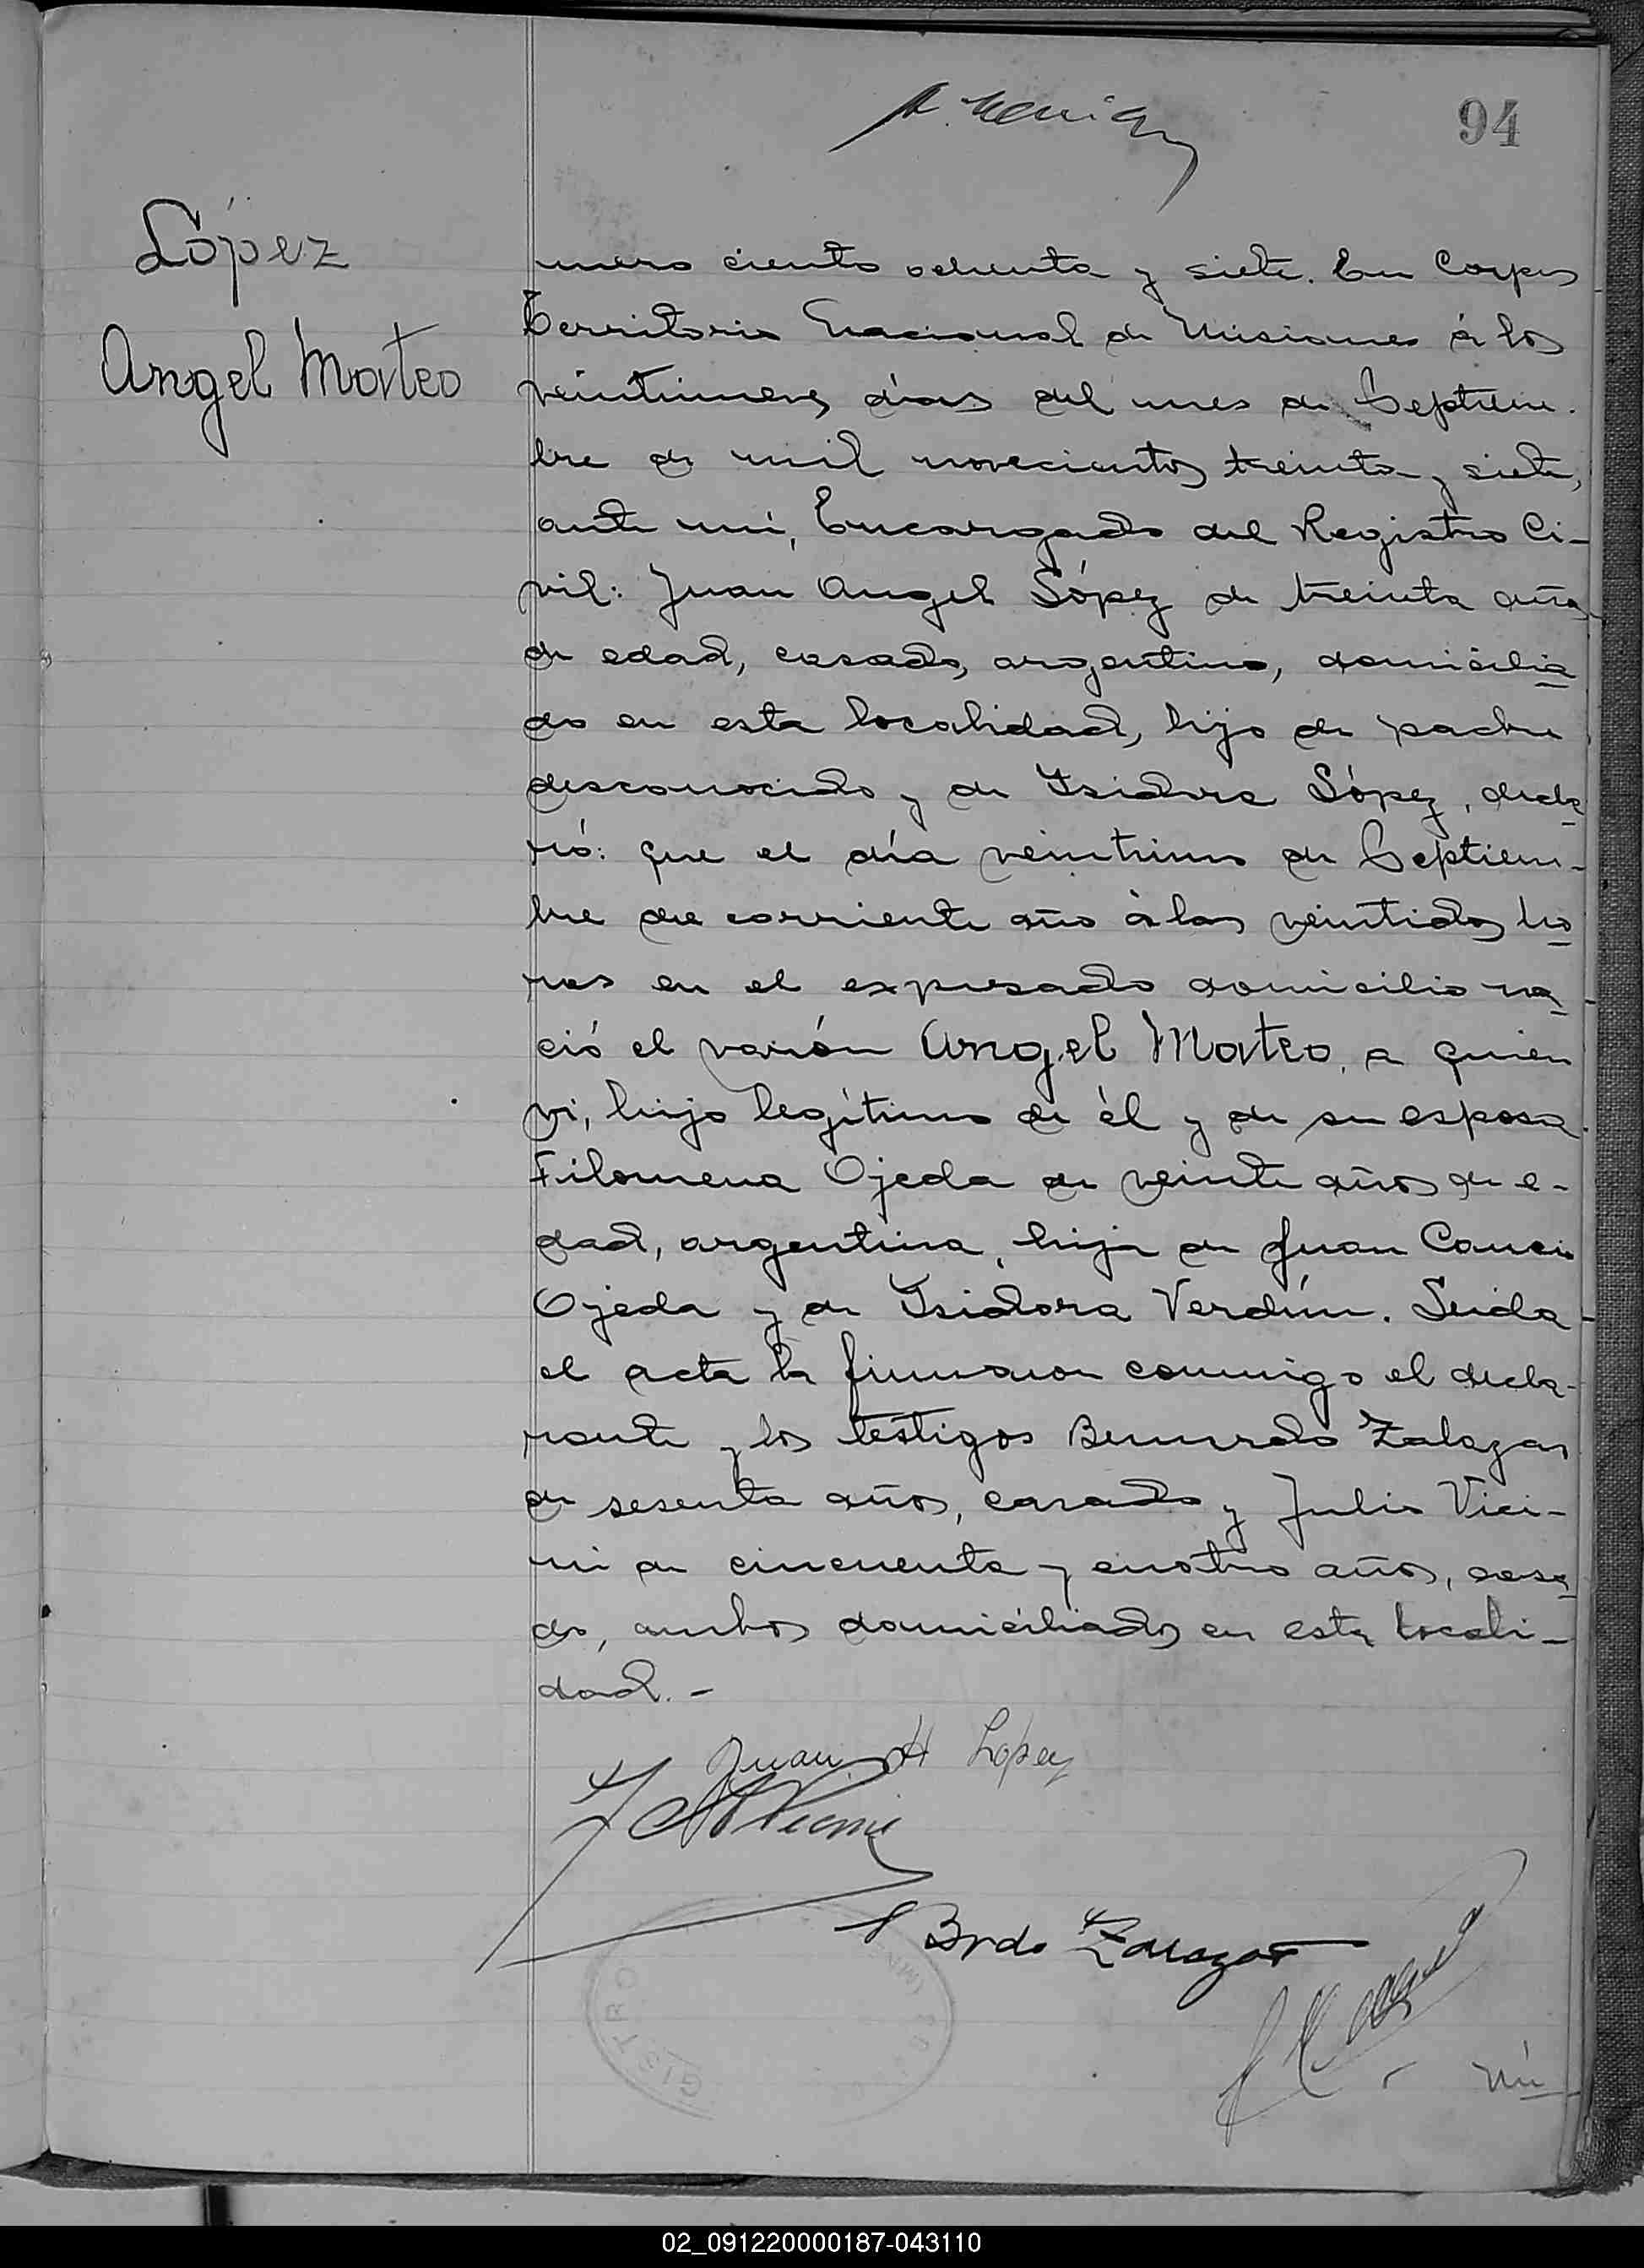 94
López
Angel Mateo
mero ciento ochenta y siete. En Corpus
Territorio Nacional de Misiones á los
veintinueve días del mes de Septiem-
bre de mil novecientos treinta y siete,
ante mí, Encargado del Registro Ci-
vil: Juan Angel López de treinta años
de edad, casado, argentino, domicilia
do en esta localidad, hijo de padre
desconocido y de Isidora López, decla
ró: que el día veintiuno de Septiem-
bre del corriente año á las veintidos ho
ras en el expresado domicilio na
ció el varón Angel Mateo, a quien
vi, hijo legítimo de él y de su esposa
Filomena Ojeda de veinte años de e-
dad, argentina, hija de Juan Cancio
Ojeda y de Isidora Verdún. Leida
el acta la firmaron conmigo el decla-
rante y los testigos Bernardo Zalazar
de sesenta años, casado y Julio Vici-
ni de cincuenta y cuatro años, casa
do, ambos domiciliados en esta locali-
dad.-
Juan A López
Vicini
Brdo Zalazar
Nú
GISTRO
02_091220000187-043110